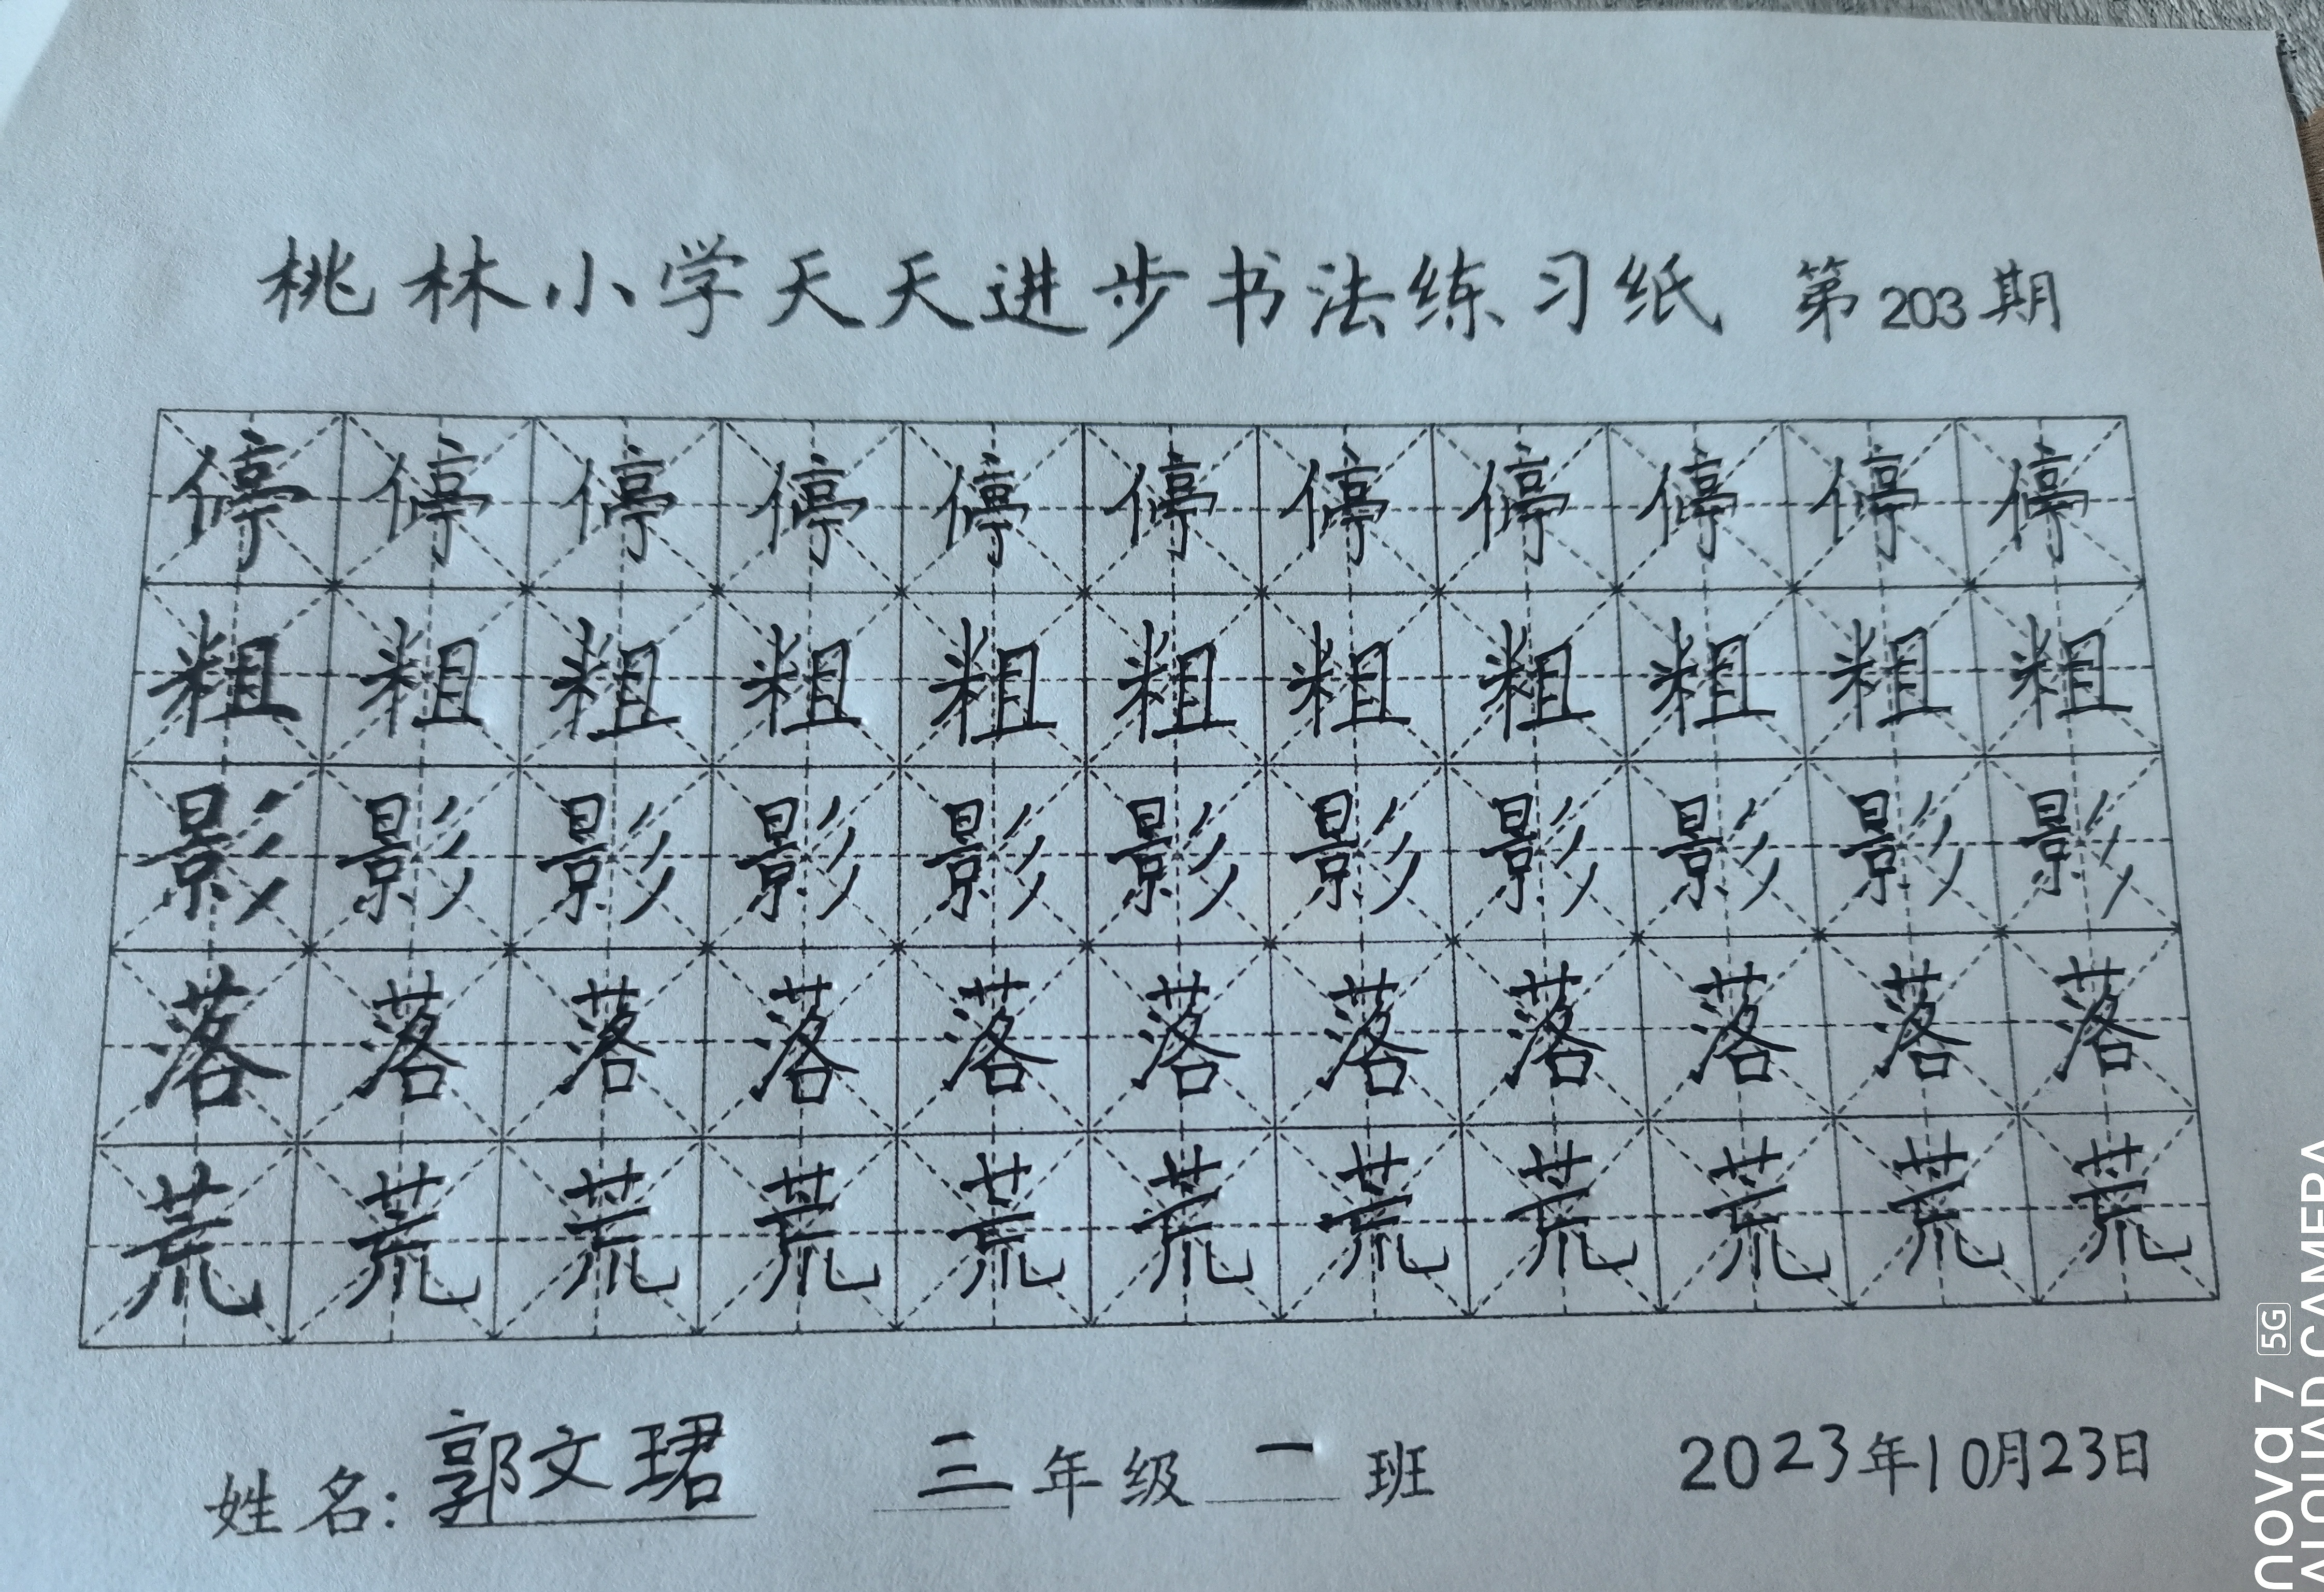 桃林小学天天进步书法练习纸 第203期
停停停停停停停停停停停
粗粗粗粗粗粗粗粗粗粗粗
影影影影影影影影影影影
落落落落落落落落落落落
荒荒荒荒荒荒荒荒荒荒荒
姓名:郭文珺 三年级一班 2023年10月23日
nova 7 5G
AI QUAD CAMERA